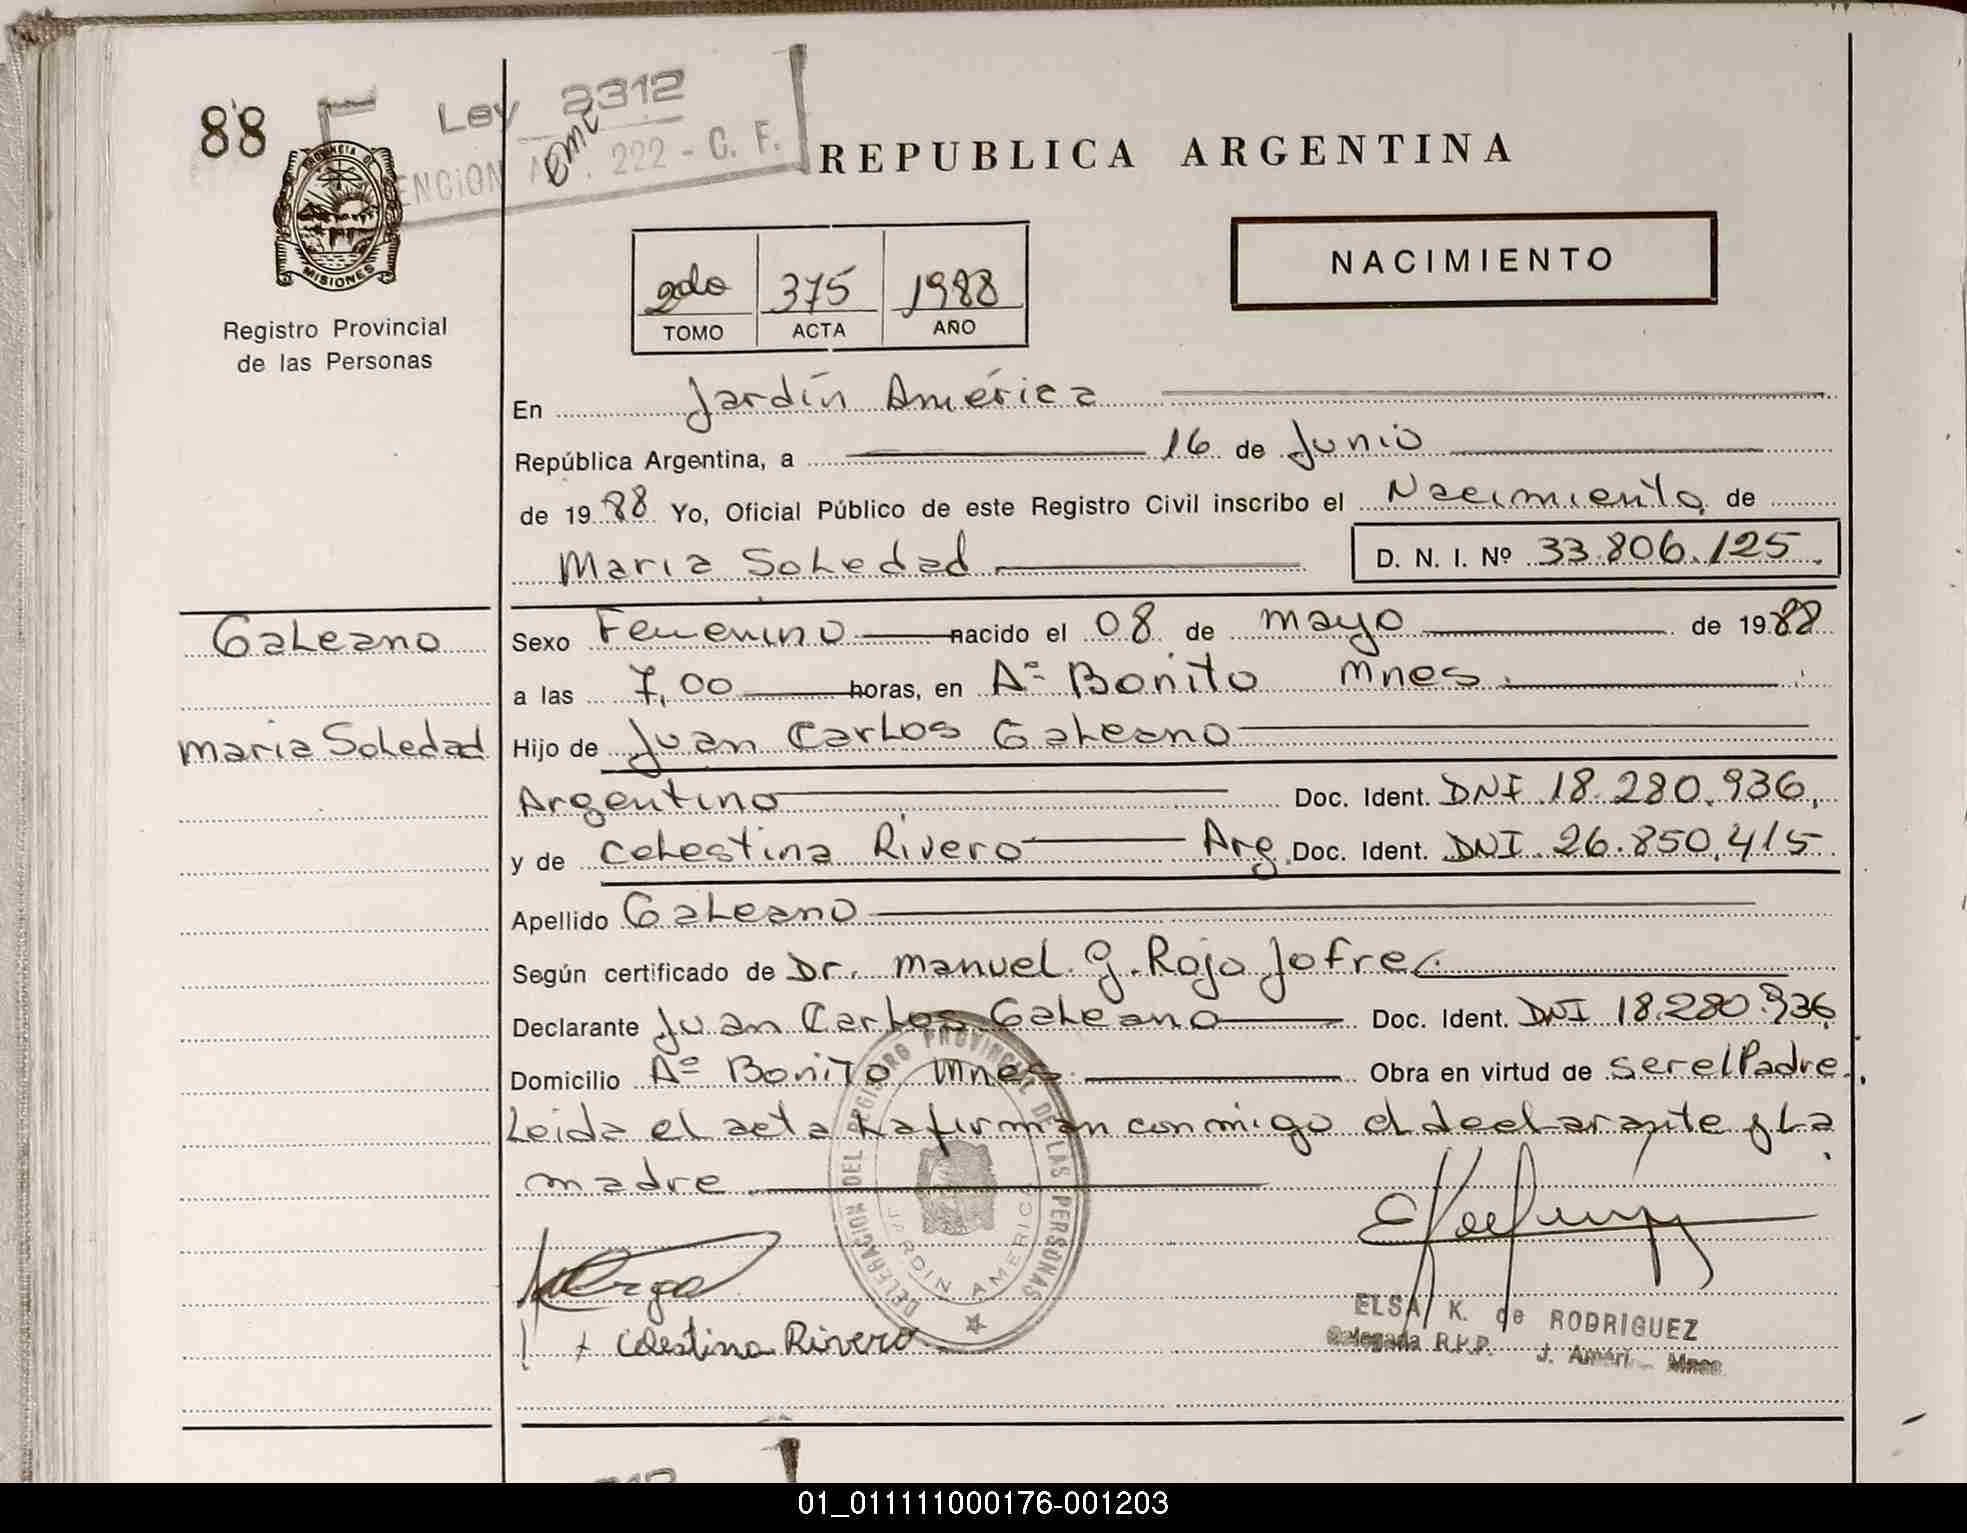 88
Ley 2312
222 - C. F.
PROVINCIA DE
MISIONES
Registro Provincial
de las Personas
REPUBLICA ARGENTINA
NACIMIENTO
2do 375 1988
TOMO ACTA AÑO
En Jardín América
República Argentina, a 16 de Junio
de 1988 Yo, Oficial Público de este Registro Civil inscribo el Nacimiento de
Maria Soledad D. N. I. Nº 33.806.125
Galeano
Maria Soledad
Sexo Femenino nacido el 08 de mayo de 1988
a las 7,00 horas, en Aº Bonito Mnes.
Hijo de Juan Carlos Galeano
Argentino Doc. Ident. DNI 18.280.936,
y de Celestina Rivero Arg. Doc. Ident. DNI 26.850.415
Apellido Galeano
Según certificado de Dr. Manuel G. Rojo Jofre
Declarante Juan Carlos Galeano Doc. Ident. DNI 18.280.936
Domicilio Aº Bonito Mnes. Obra en virtud de ser el Padre.
Leida el acta la firman conmigo el declarante y La
madre
DELEGACION DEL REGISTRO PROVINCIAL DE LAS PERSONAS
JARDIN AMERICA
Celestina Rivero
ELSA K. de RODRIGUEZ
Delegada R.P.P. J. Améri Mnes.
01_011111000176-001203